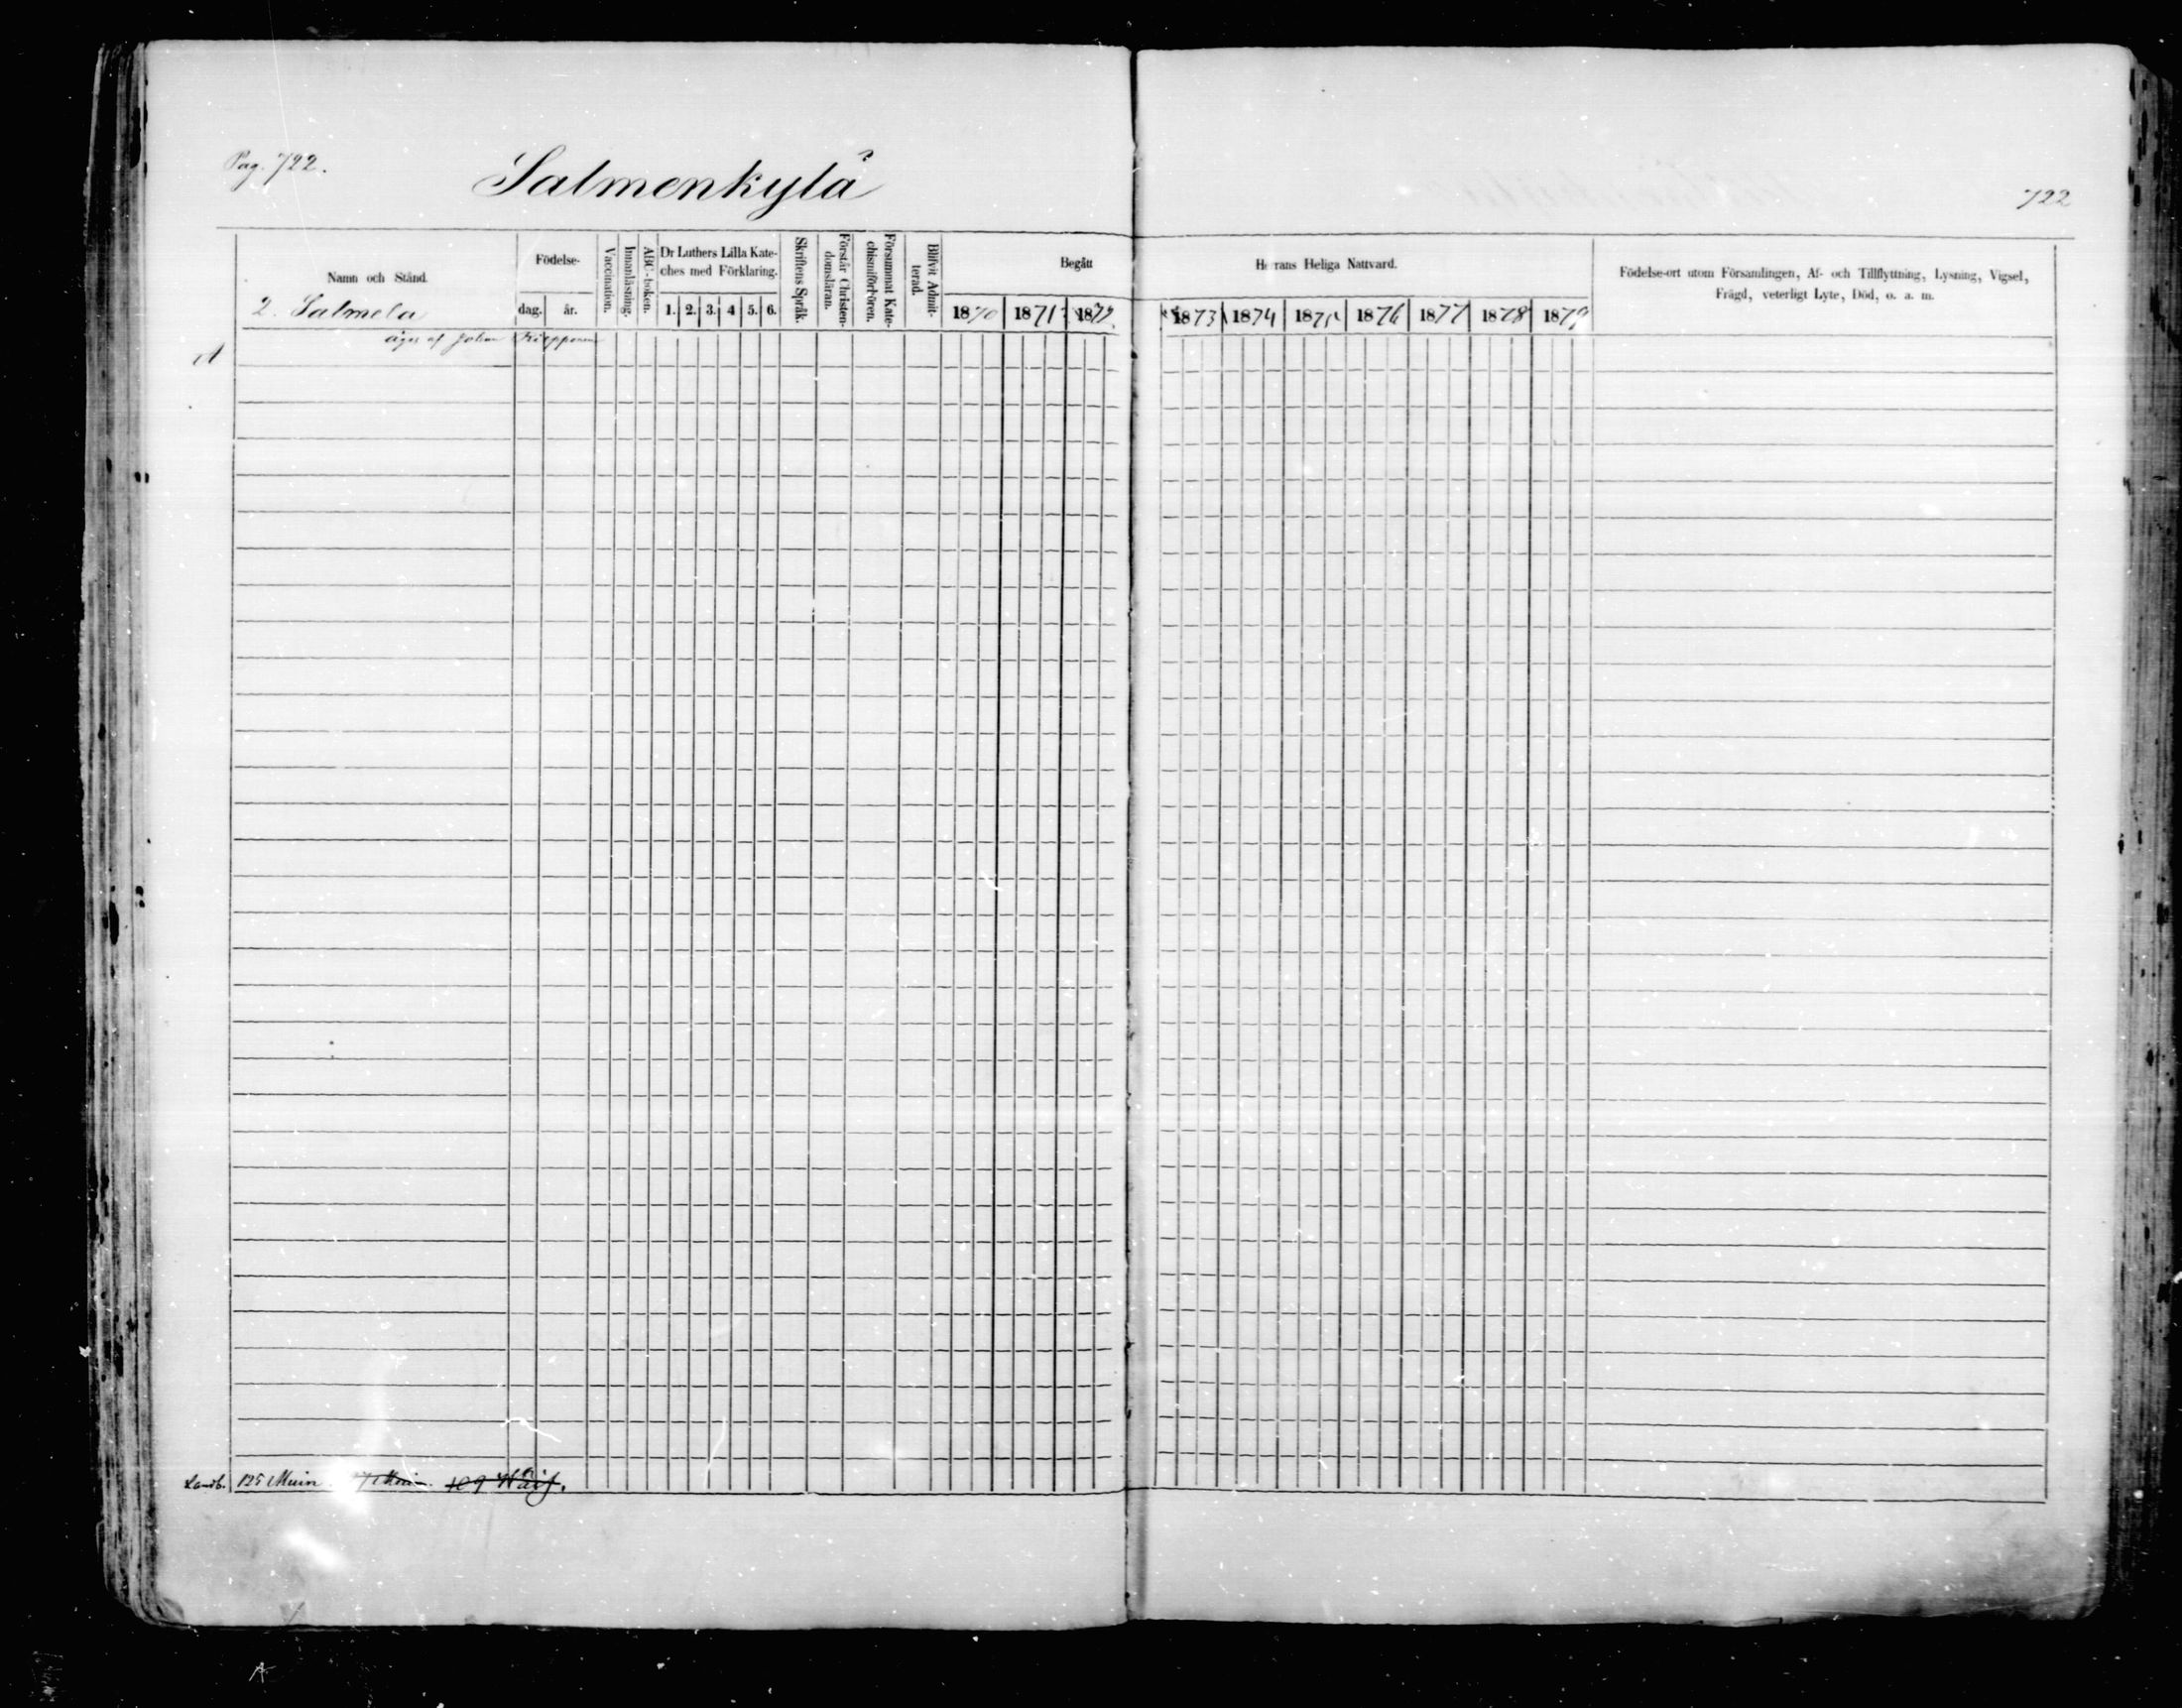 Pag. 722.
Salmenkylä
722
Namn och Stånd.
2. Salmela
Födelse-
dag.
år.
Vaccination.
Innanläsning.
ABC-boken.
Dr Luthers Lilla Kate-
ches med Förklaring.
1. 2. 3. 4 5. 6.
Skriftens Språk.
Förstår Christen-
domsläran.
Försummat Kate-
chismiförhören.
Blifvit Admit-
terad.
Begått
Herrans Heliga Nattvard.
1870 1871 1872 1873 1874 1875 1876 1877 1878 1879
Födelse-ort utom Församlingen, Af- och Tillflyttning, Lysning, Vigsel,
Frägd, veterligt Lyte, Död, o. a. m.
äges af Johan
Landb. 125